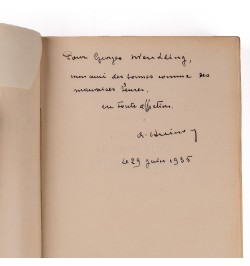 Pour Georges Wendling,
mon ami des bonnes comme des
mauvaises heures.
en toute affection.
le 29 juin 1935